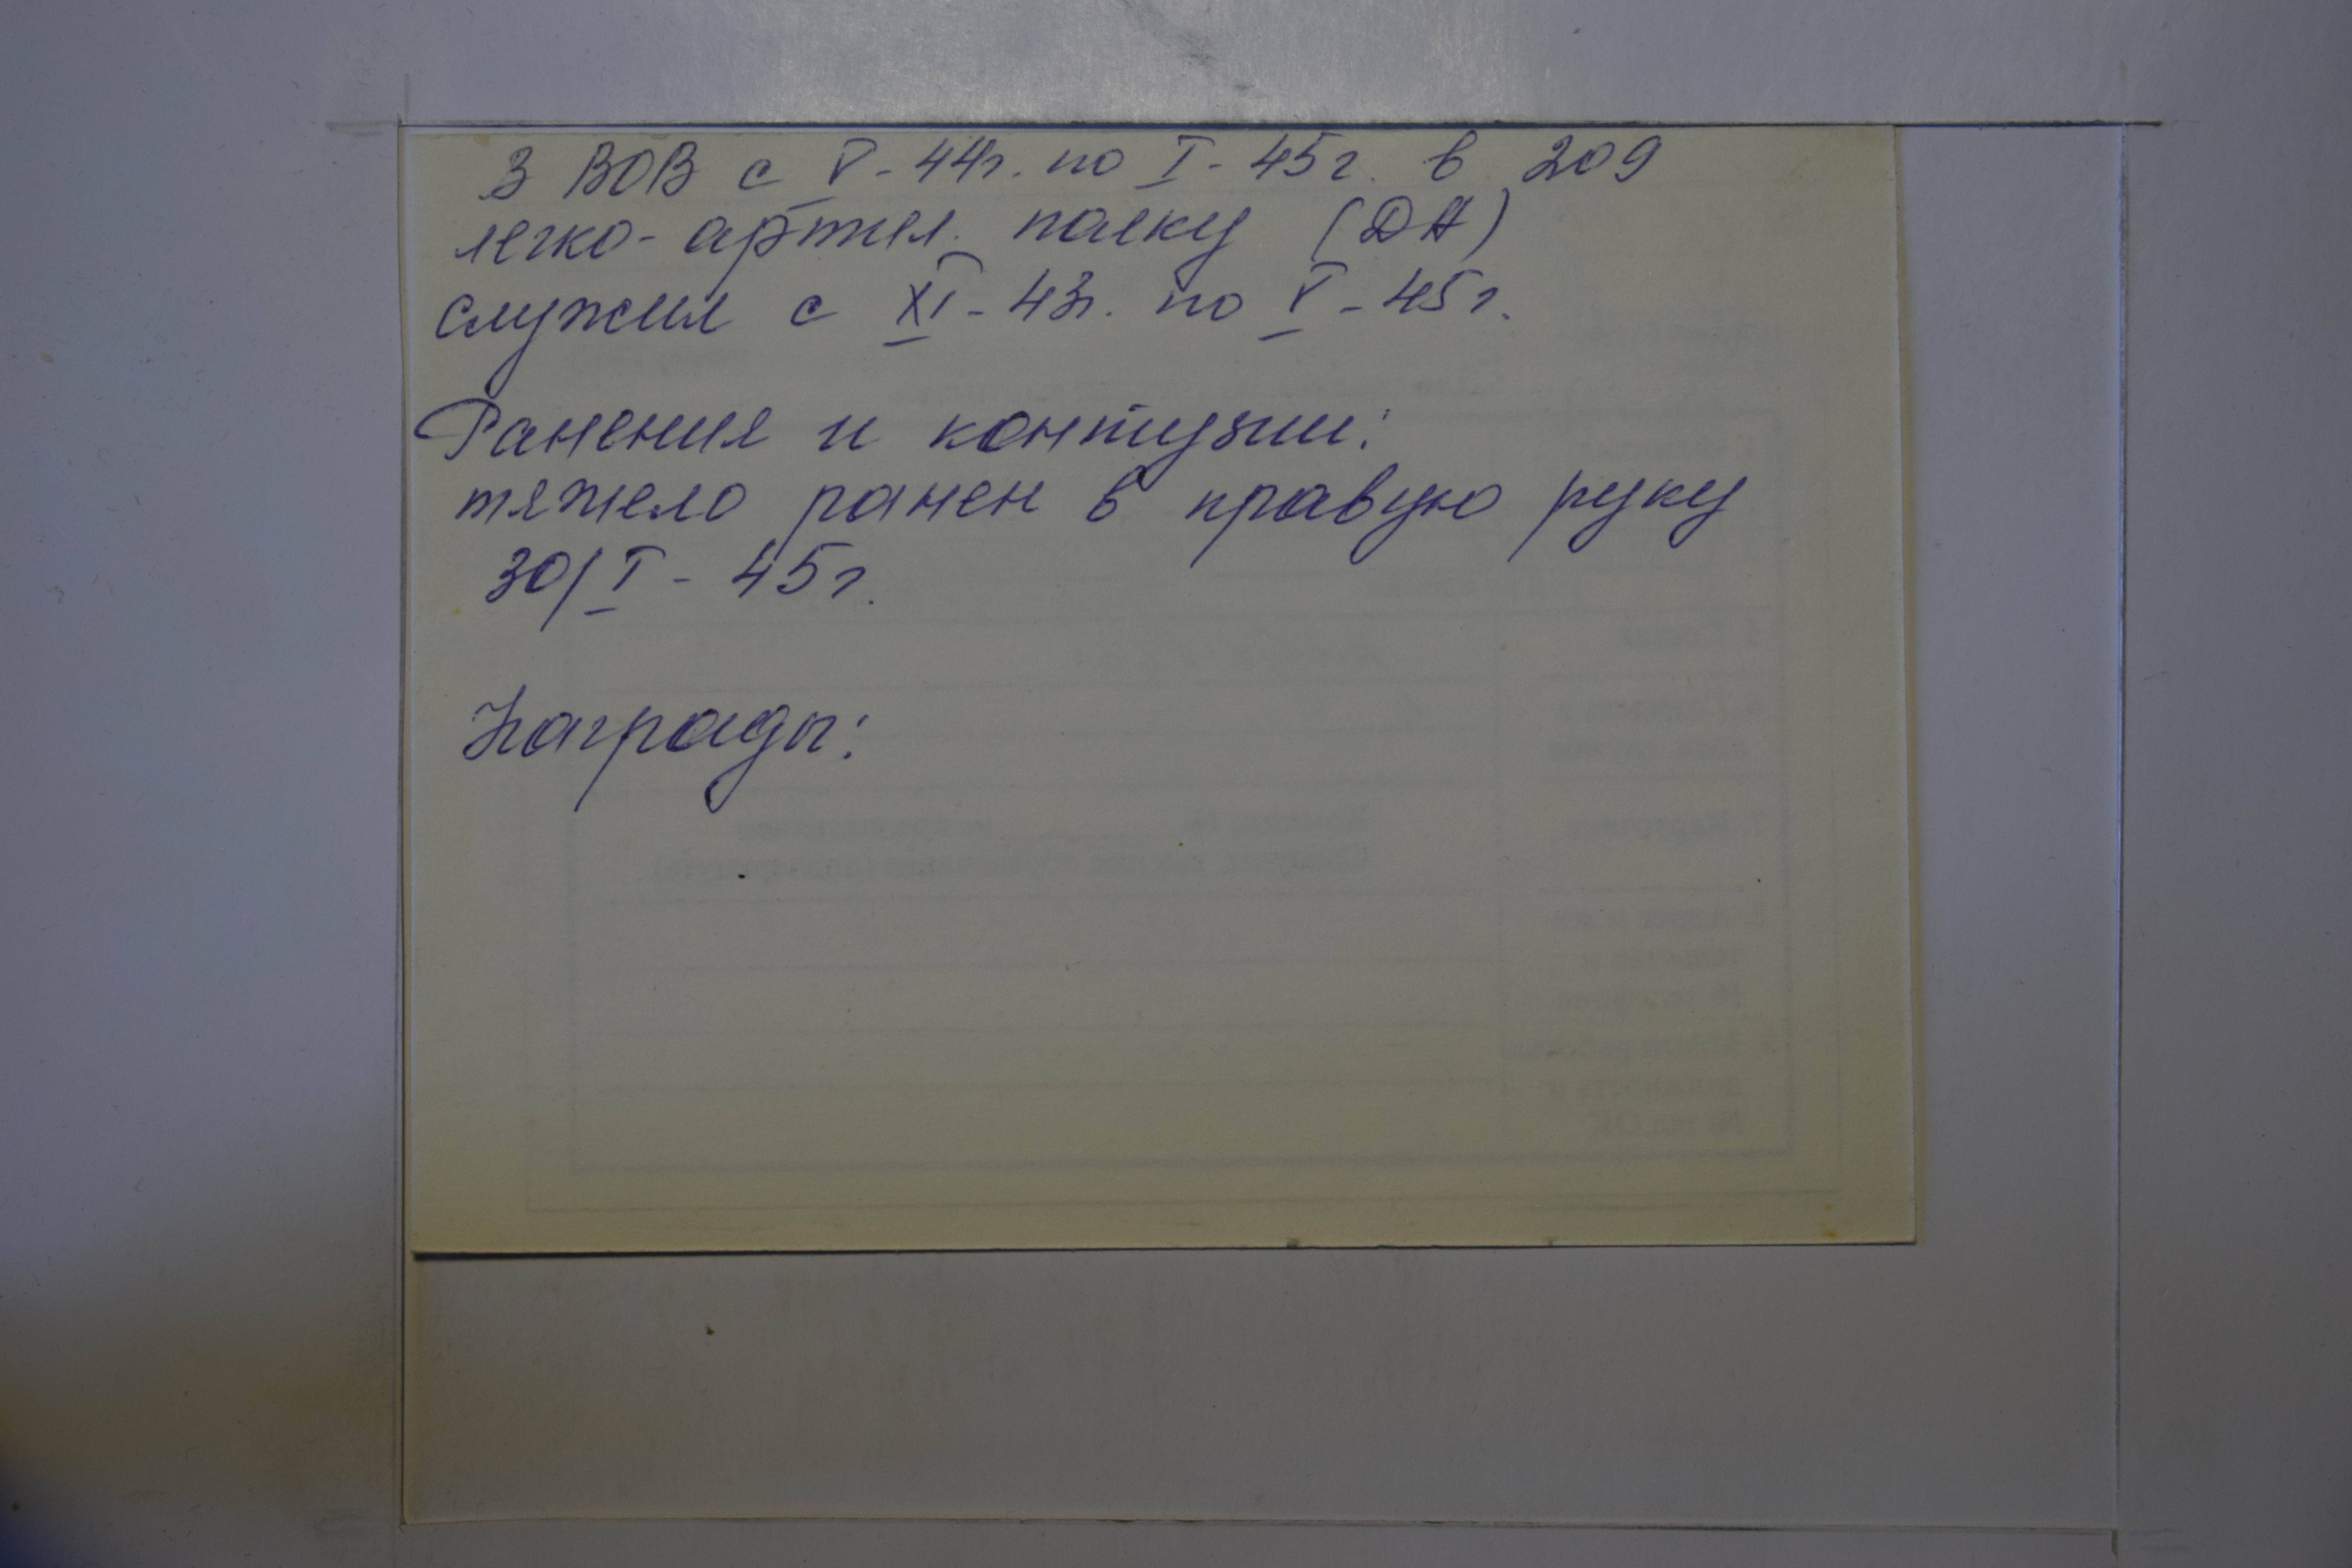 В ВОВ с V-44г. по I-45г. в 209
легко-артил. полку (ДА)
служил с XI-43г. по V-45г.
Ранения и контузии:
тяжело ранен в правую руку
30/I-45г.
Награды: